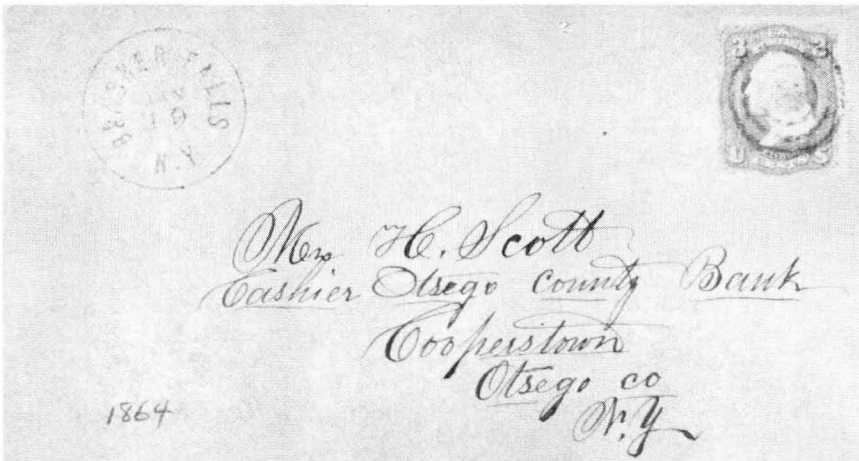 BRASHER FALLS
N.Y.
3 3
U S
Mr H. Scott
Cashier Otsego County Bank
Cooperstown
Otsego co
N.Y
1864